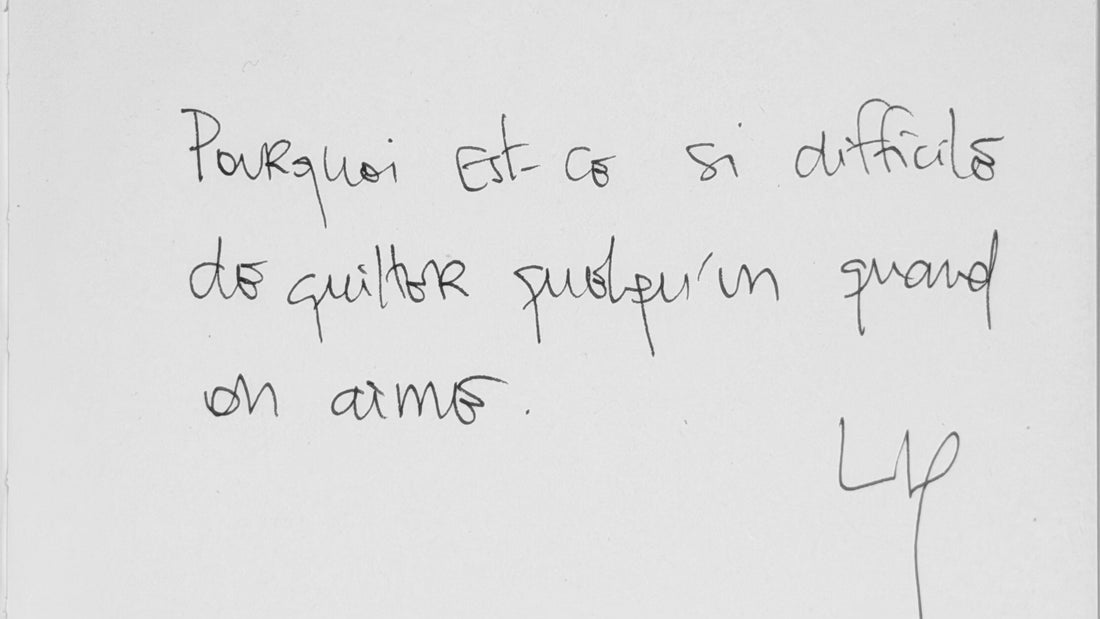 Pourquoi est-ce si difficile
de quitter quelqu'un quand
on aime.